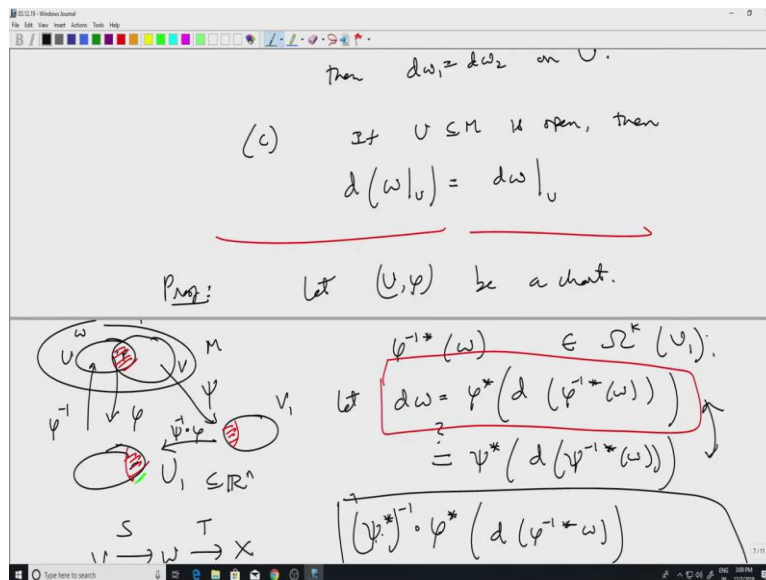 03.12.19 - Windows Journal
File Edit View Insert Actions Tools Help
B I
then dω₁ = dω₂ on U.
(c) If U ⊆ M is open, then
d(ω|_U) = dω|_U
Proof: Let (U, φ) be a chart.
ω
U V M
φ⁻¹ φ ψ V₁
ψ⁻¹∘φ
U₁ ⊆ ℝⁿ
S T
V → W → X
φ⁻¹*(ω) ∈ Ω^k (U₁):
Let dω = φ*(d (φ⁻¹*(ω)))
?
= ψ*(d(ψ⁻¹*(ω)))
(ψ*)⁻¹∘φ*(d(φ⁻¹*ω)
7/11
Type here to search
ENG 3:09 PM
IN